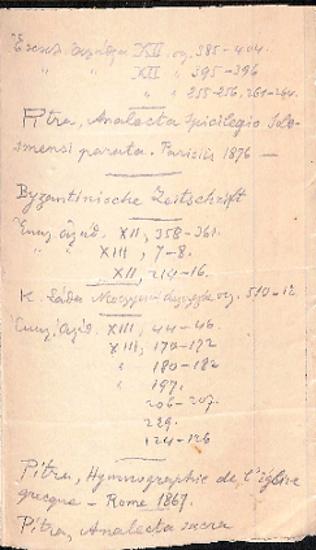 Ἐκκλ. ἀλήθεια XII σς. 385-404.
" " XII " 395-396
" " 255-256, 261-264.
Pitra, Analecta Spicilegio Sole-
smensi parata. Parisiis 1876 —
Byzantinische Zeitschrift
Ἐκκλ. ἀλήθ. XII, 358-361.
" " XIII, 7-8.
XII, 214-16.
Κ. Σάθα σς. 510-12
Ἐκκλ. ἀλήθ. XIII, 44-46.
XIII, 170-172
" 180-182
" 197.
206-207.
229.
124-126
Pitra, Hymnographie de l'église
grecque - Rome 1867.
Pitra, Analecta sacra